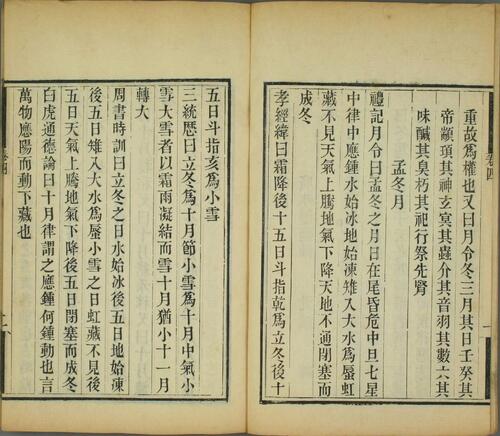 卷四
一
重故爲權也又曰月令冬三月其日壬癸其
帝顓頊其神玄冥其蟲介其音羽其數六其
味鹹其臭朽其祀行祭先腎
孟冬月
禮記月令曰孟冬之月日在尾昏危中旦七星
中律中應鍾水始冰地始凍雉入大水爲蜃虹
藏不見天氣上騰地氣下降天地不通閉塞而
成冬
孝經緯曰霜降後十五日斗指乾爲立冬後十
五日斗指亥爲小雪
三統曆曰立冬爲十月節小雪爲十月中氣小
雪大雪者以霜雨凝結而雪十月猶小十一月
轉大
周書時訓曰立冬之日水始冰後五日地始凍
後五日雉入大水爲蜃小雪之日虹藏不見後
五日天氣上騰地氣下降後五日閉塞而成冬
白虎通德論曰十月律謂之應鍾何鍾動也言
萬物應陽而動下藏也